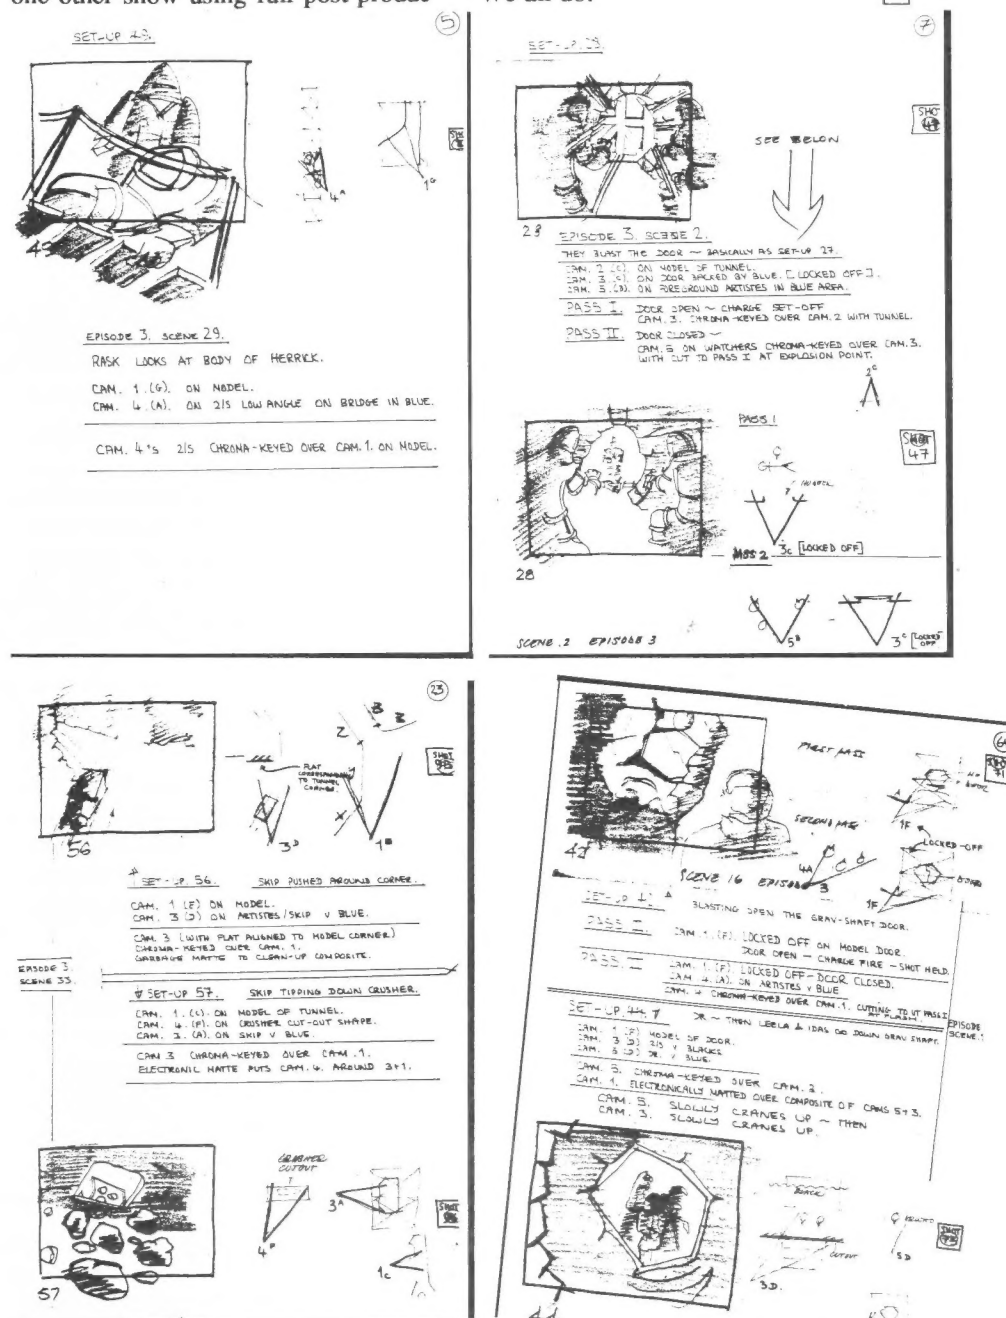 one other show using full post-produc-
we all do.
5
SET-UP 49.
49
4A
1G
EPISODE 3. SCENE 29.
RASK LOOKS AT BODY OF HERRICK.
CAM. 1.(G). ON MODEL.
CAM. 4.(A). ON 2/S LOW ANGLE ON BRIDGE IN BLUE.
CAM. 4's 2/S CHROMA-KEYED OVER CAM. 1. ON MODEL.
7
SET-UP 28.
SHOT
SEE BELOW
28
EPISODE 3. SCENE 2.
THEY BLAST THE DOOR ~ BASICALLY AS SET-UP 27.
CAM. 2 (C). ON MODEL OF TUNNEL.
CAM. 3.(C). ON DOOR BACKED BY BLUE. [LOCKED OFF].
CAM. 5.(B). ON FOREGROUND ARTISTES IN BLUE AREA.
PASS I. DOOR OPEN ~ CHARGE SET-OFF
CAM. 3. CHROMA-KEYED OVER CAM. 2 WITH TUNNEL.
PASS II. DOOR CLOSED ~
CAM. 5 ON WATCHERS CHROMA-KEYED OVER CAM. 3.
WITH CUT TO PASS I AT EXPLOSION POINT.
2C
PASS 1
SHOT
47
3C [LOCKED OFF]
PASS 2
28
5B
3C [LOCKED
OFF
SCENE.2 EPISODE 3
23
SHOT
FLAT
CORRESPONDING
TO TUNNEL
CORNER.
56
3D
1E
SET-UP 56. SKIP PUSHED AROUND CORNER.
CAM. 1 (E) ON MODEL.
CAM. 3 (D) ON ARTISTES/SKIP V BLUE.
CAM. 3 (WITH FLAT ALIGNED TO MODEL CORNER)
CHROMA-KEYED OVER CAM. 1.
GARBAGE MATTE TO CLEAN-UP COMPOSITE.
EPISODE 3.
SCENE 33.
SET-UP 57. SKIP TIPPING DOWN CRUSHER.
CAM. 1.(C). ON MODEL OF TUNNEL.
CAM. 4.(F). ON CRUSHER CUT-OUT SHAPE.
CAM. 3.(A). ON SKIP V BLUE.
CAM 3 CHROMA-KEYED OVER CAM. 1.
ELECTRONIC MATTE PUTS CAM. 4. AROUND 3+1.
CUTOUT
3A
SHOT
1C
57
FIRST PASS
SHOT
71
NO
DOOR
SECOND PASS
1F
LOCKED-OFF
4A
1F
SCENE 16 EPISODE 3
BLASTING OPEN THE GRAV-SHAFT DOOR.
PASS I. CAM. 1.(F). LOCKED OFF ON MODEL DOOR.
DOOR OPEN ~ CHARGE FIRE ~ SHOT HELD.
PASS II CAM. 1.(F). LOCKED OFF ~ DOOR CLOSED.
CAM. 4.(A). ON ARTISTES V BLUE
CAM. 4 CHROMA-KEYED OVER CAM.1. CUTTING TO VT PASS I
AT FLASH.
SET-UP DR ~ THEN LEELA & IDAS GO DOWN GRAV SHAFT.
EPISODE
SCENE.
CAM. 1 (F) MODEL OF DOOR.
CAM. 3 (D) 2/S V BLACKS
CAM. 5 (D) DR. V BLUE.
CAM. 5. CHROMA-KEYED OVER CAM. 2.
CAM. 1. ELECTRONICALLY MATTED OVER COMPOSITE OF CAMS 5+3.
CAM. 5. SLOWLY CRANES UP ~ THEN
CAM. 3. SLOWLY CRANES UP.
CUTOUT
5D
SHOT
3D.